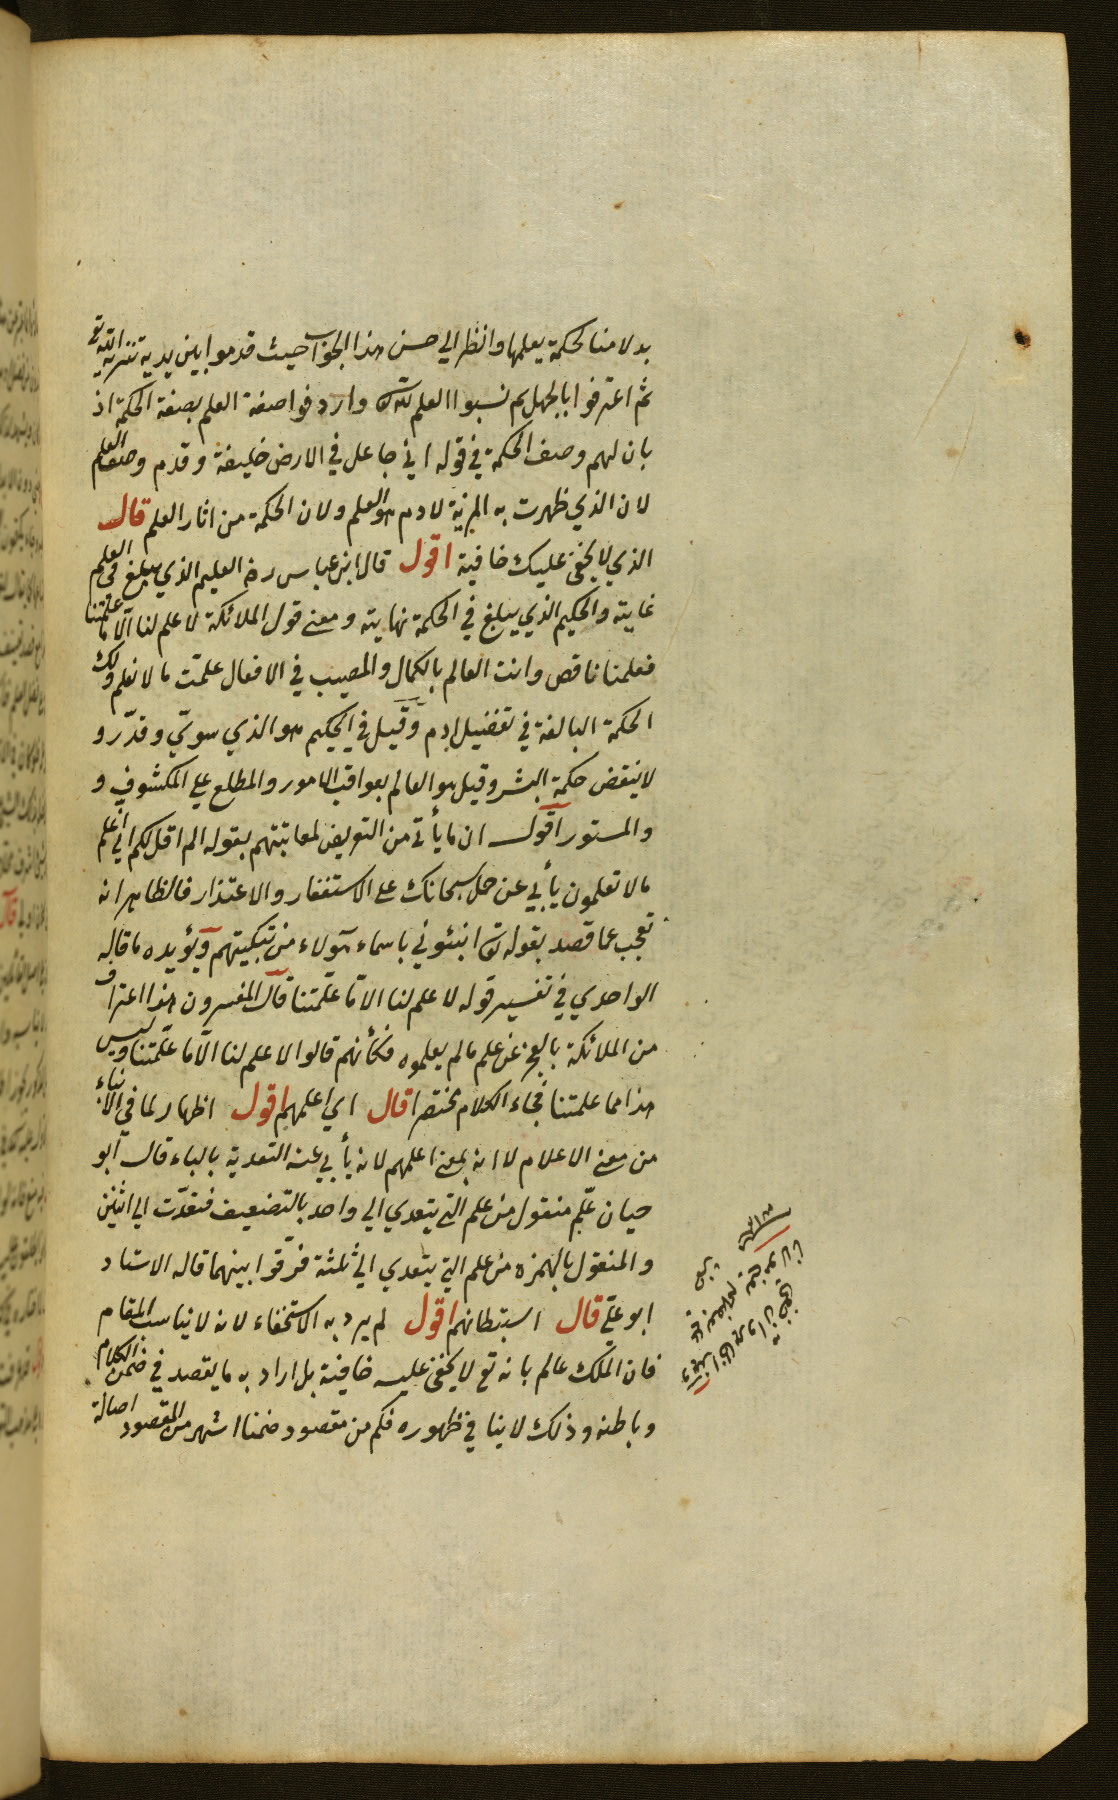 بدلا منا لحكمة يعلمها وانظر الي حسن هذا الجواب حيث قدموا بين يديه تنزيه الله تع
ثم اعترفوا بالجهل ثم نسبوا العلم لله تع واردفوا صفة العلم بصفة الحكمة اذ
بان لهم وصف الحكمة في قوله اني جاعل في الارض خليفة وقدم وصف العلم
لان الذي ظهرت به المزية لادم هو العلم ولان الحكمة من اثار العلم قال
الذي لا يخفى عليك خافية اقول قال ابن عباس رض العليم الذي يبلغ في العلم
غايته والحكيم الذي يبلغ في الحكمة نهايته ومعنى قول الملائكة لا علم لنا الا ما علمتنا
فعلمنا ناقص وانت العالم بالكمال والمصيب في الافعال علمت ما لا نعلم ولك
الحكمة البالغة في تفضيل ادم وقيل في الحكيم هو الذي سوّي وقدّر و
لا ينقض حكمة البشر وقيل هو العالم بعواقب الامور والمطلع علي المكشوف و
والمستور اقول ان ما يأتي من التعريض لمعاتبتهم بقوله الم اقل لكم اني اعلم
ما لا تعلمون يأبي عن حمل سبحانك على الاستغفار والاعتذار فالظاهر انه
تعجب عما قصد بقوله تع انبئوني باسماء هؤلاء من تبكيتهم ويؤيده ما قاله
الواحدي في تفسير قوله لا علم لنا الا ما علّمتنا قال المفسرون هذا اعتراف
من الملائكة بالعجز عن علم ما لم يعلموه فكأنهم قالوا لا علم لنا الّا ما علّمتنا وليس
هذا مما علمتنا فجاء الكلام مختصرا قال اي اعلمهم اقول اظهار لما في الأنباء
من معنى الاعلام لا انه بمعنى اعلمهم لانه يأبي عنه التعدية بالباء قال ابو
حيان علّم منقول من علم التي يتعدي الي واحد بالتضعيف فتعدّت الي اثنين
والمنقول بالهمزه من علم التي يتعدي الي ثلثة فرقوا بينهما قاله الاستاد
ابو عليّ قال استبطانهم اقول لم يرد به الاستخفاء لانه لا يناسب المقام
فان الملك عالم بانه تع لا يخفى عليه خافية بل اراد به ما يقصد في ضمن الكلام
وباطنه وذلك لا ينافي ظهوره فكم من مقصود ضمنا اشهر من المقصود اصالة